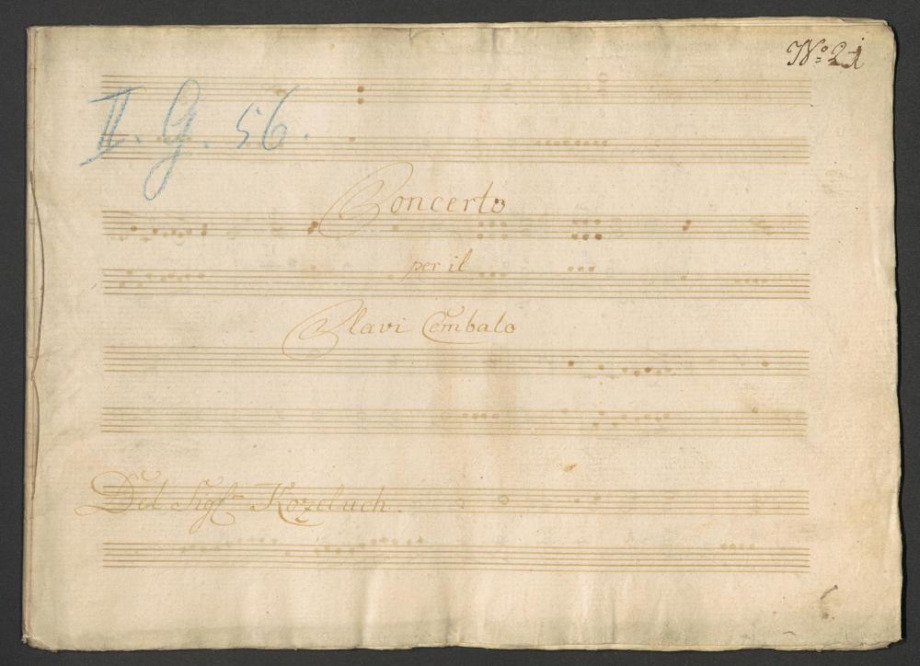 No 21
II. G. 56.
Concerto
per il
Clavi Cembalo
Del Sigre Kozeluch.